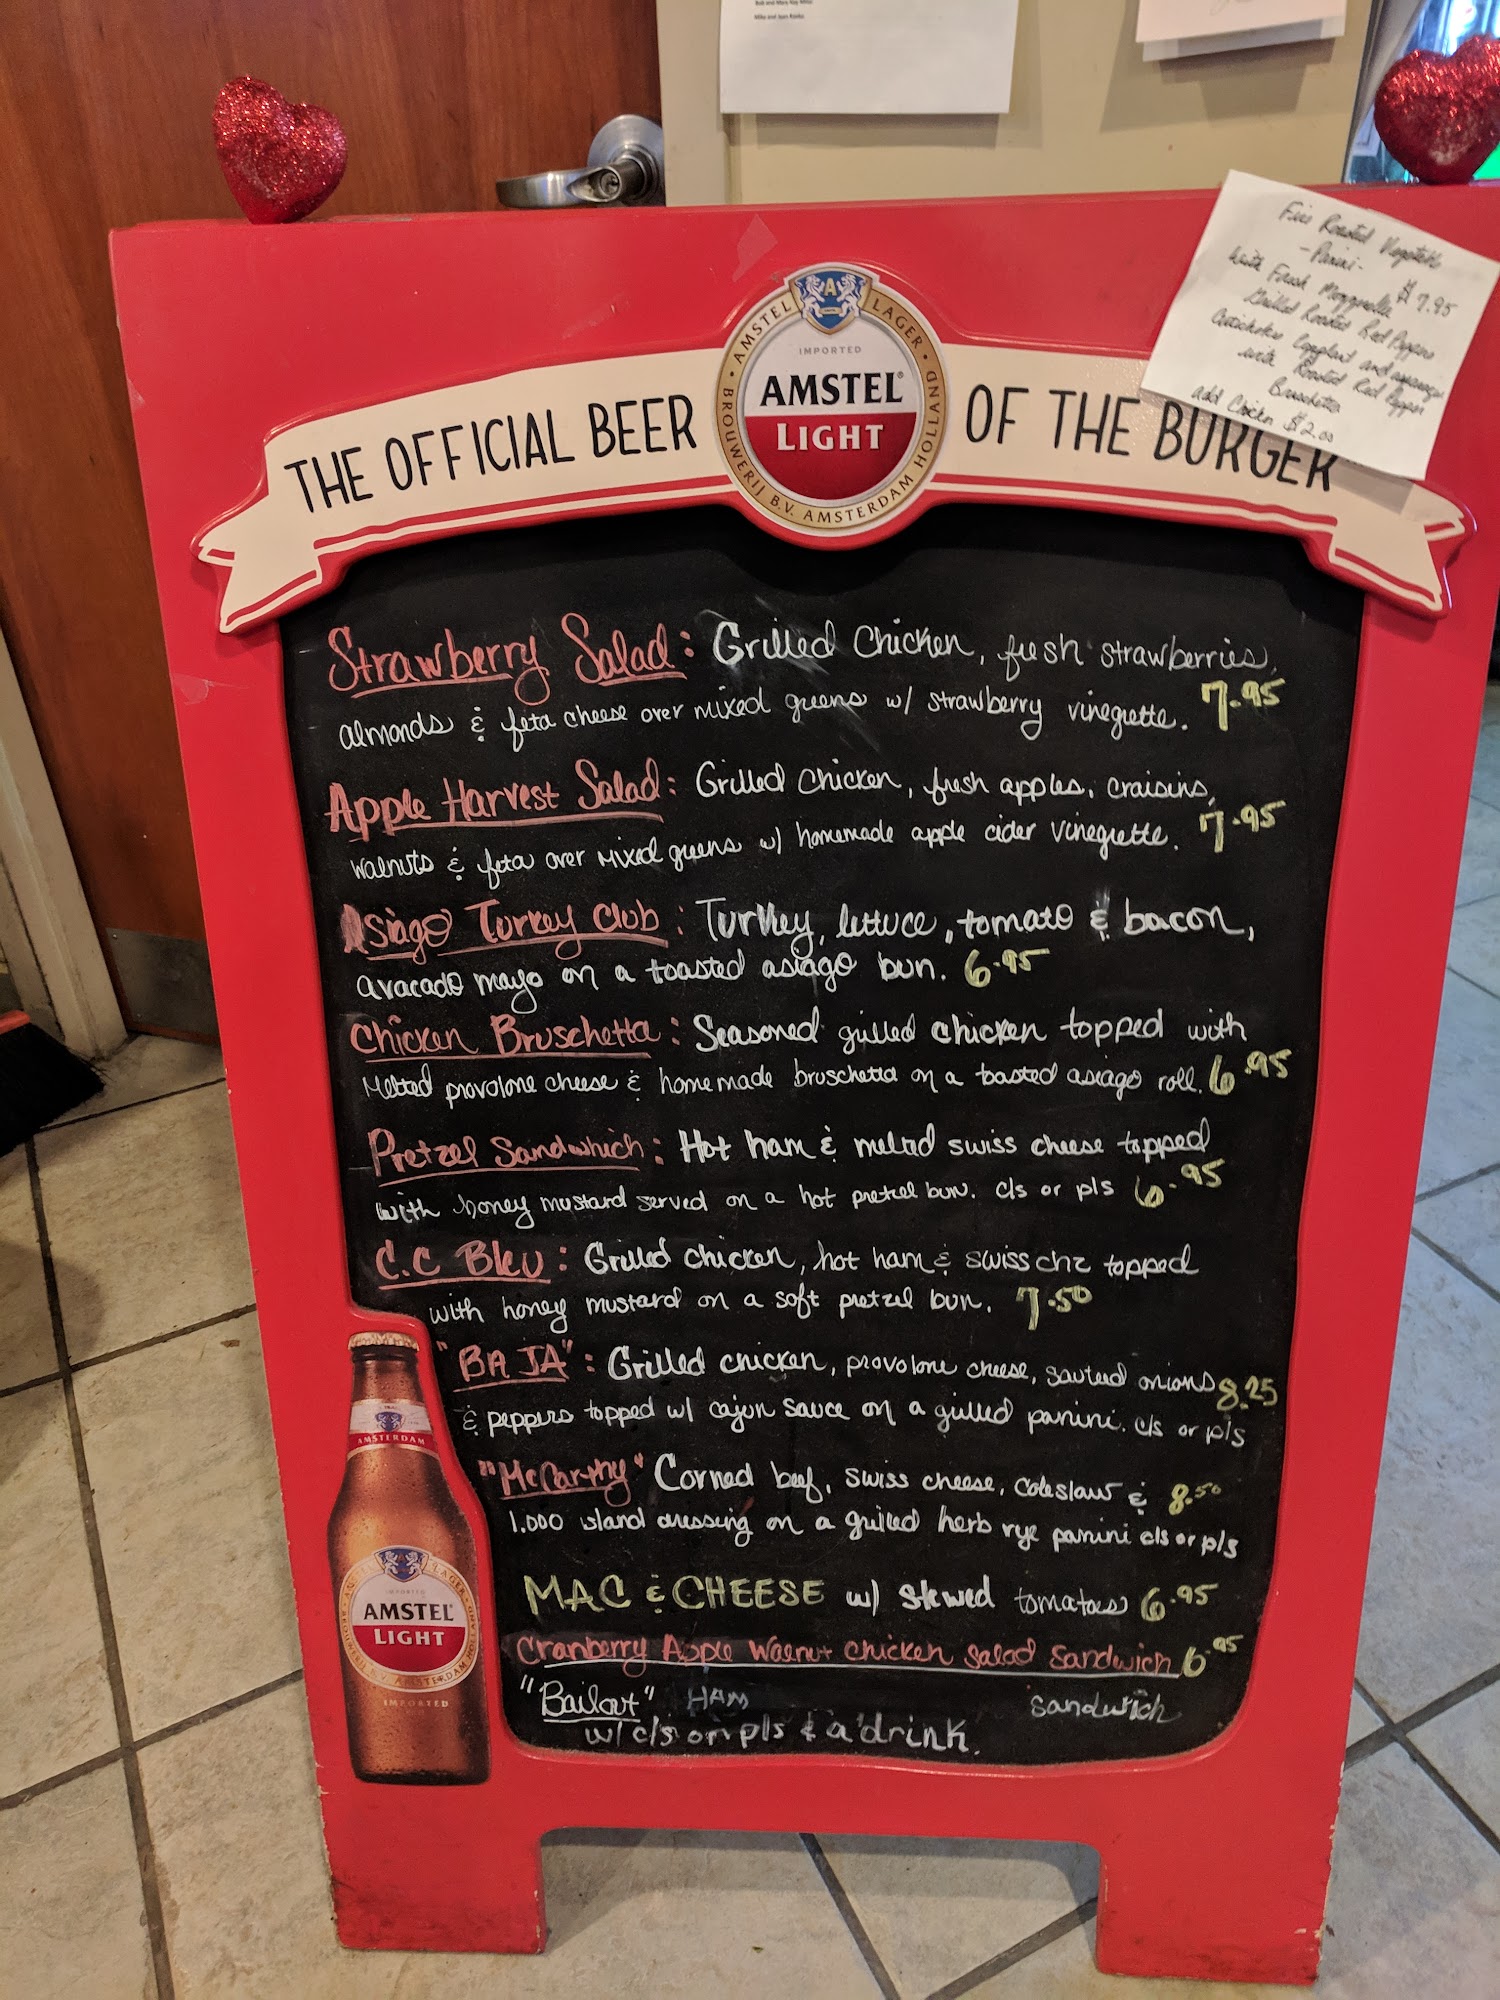 Bob and Mary Kay Miller
Mike and Jean Raisko
Fire Roasted Vegetable
- Panini -
$7.95
with Fresh Mozzarella
Grilled Roasted Red Peppers
Artichokes Eggplant and asparagus
with Roasted Red Pepper
Bruschetta
add Chicken $2.00
THE OFFICIAL BEER
OF THE BURGER
AMSTEL LAGER
BROUWERIJ B.V. AMSTERDAM HOLLAND
IMPORTED
AMSTEL®
LIGHT
Strawberry Salad: Grilled Chicken, fresh strawberries,
almonds & feta cheese over mixed greens w/ strawberry vinegrette. 7.95
Apple Harvest Salad: Grilled Chicken, fresh apples, craisins,
walnuts & feta over mixed greens w/ homemade apple cider vinegrette. 7.95
Asiago Turkey Club: Turkey, lettuce, tomato & bacon,
avacado mayo on a toasted asiago bun. 6.95
Chicken Bruschetta: Seasoned grilled chicken topped with
Melted provolone cheese & homemade bruschetta on a toasted asiago roll. 6.95
Pretzel Sandwhich: Hot ham & melted swiss cheese topped
with honey mustard served on a hot pretzel bun. c/s or p/s 6.95
C.C Bleu: Grilled chicken, hot ham & swiss chz topped
with honey mustard on a soft pretzel bun. 7.50
"BAJA": Grilled chicken, provolone cheese, sauteed onions 8.25
& peppers topped w/ cajun sauce on a grilled panini. c/s or p/s
"McCarthy" Corned beef, swiss cheese, coleslaw & 8.50
1.000 island dressing on a grilled herb rye panini c/s or p/s
MAC & CHEESE w/ stewed tomatoes 6.95
Cranberry Apple Walnut chicken salad sandwich 6.95
"Bailout" HAM sandwich
w/ c/s or p/s & a drink.
AMSTERDAM
IMPORTED
AMSTEL
LIGHT
IMPORTED